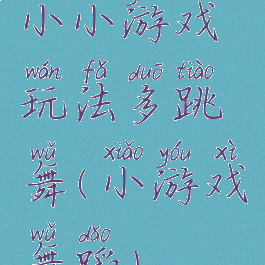 小小游戏
wán fǎ duō tiào
玩法多跳
wǔ xiǎo yóu xì
舞(小游戏
wǔ dǎo
舞蹈)